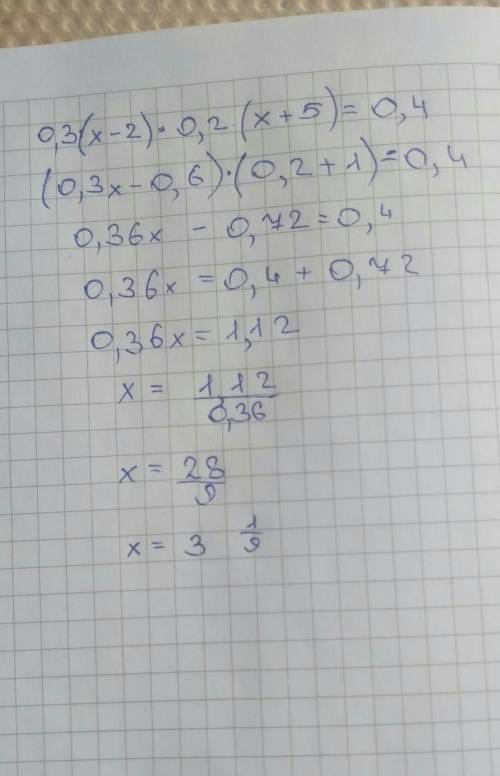 0,3(x-2)·0,2·(x+5)=0,4
(0,3x-0,6)·(0,2+1)=0,4
0,36x - 0,72=0,4
0,36x =0,4+0,72
0,36x=1,12
x = 1,12/0,36
x = 28/9
x = 3 1/9